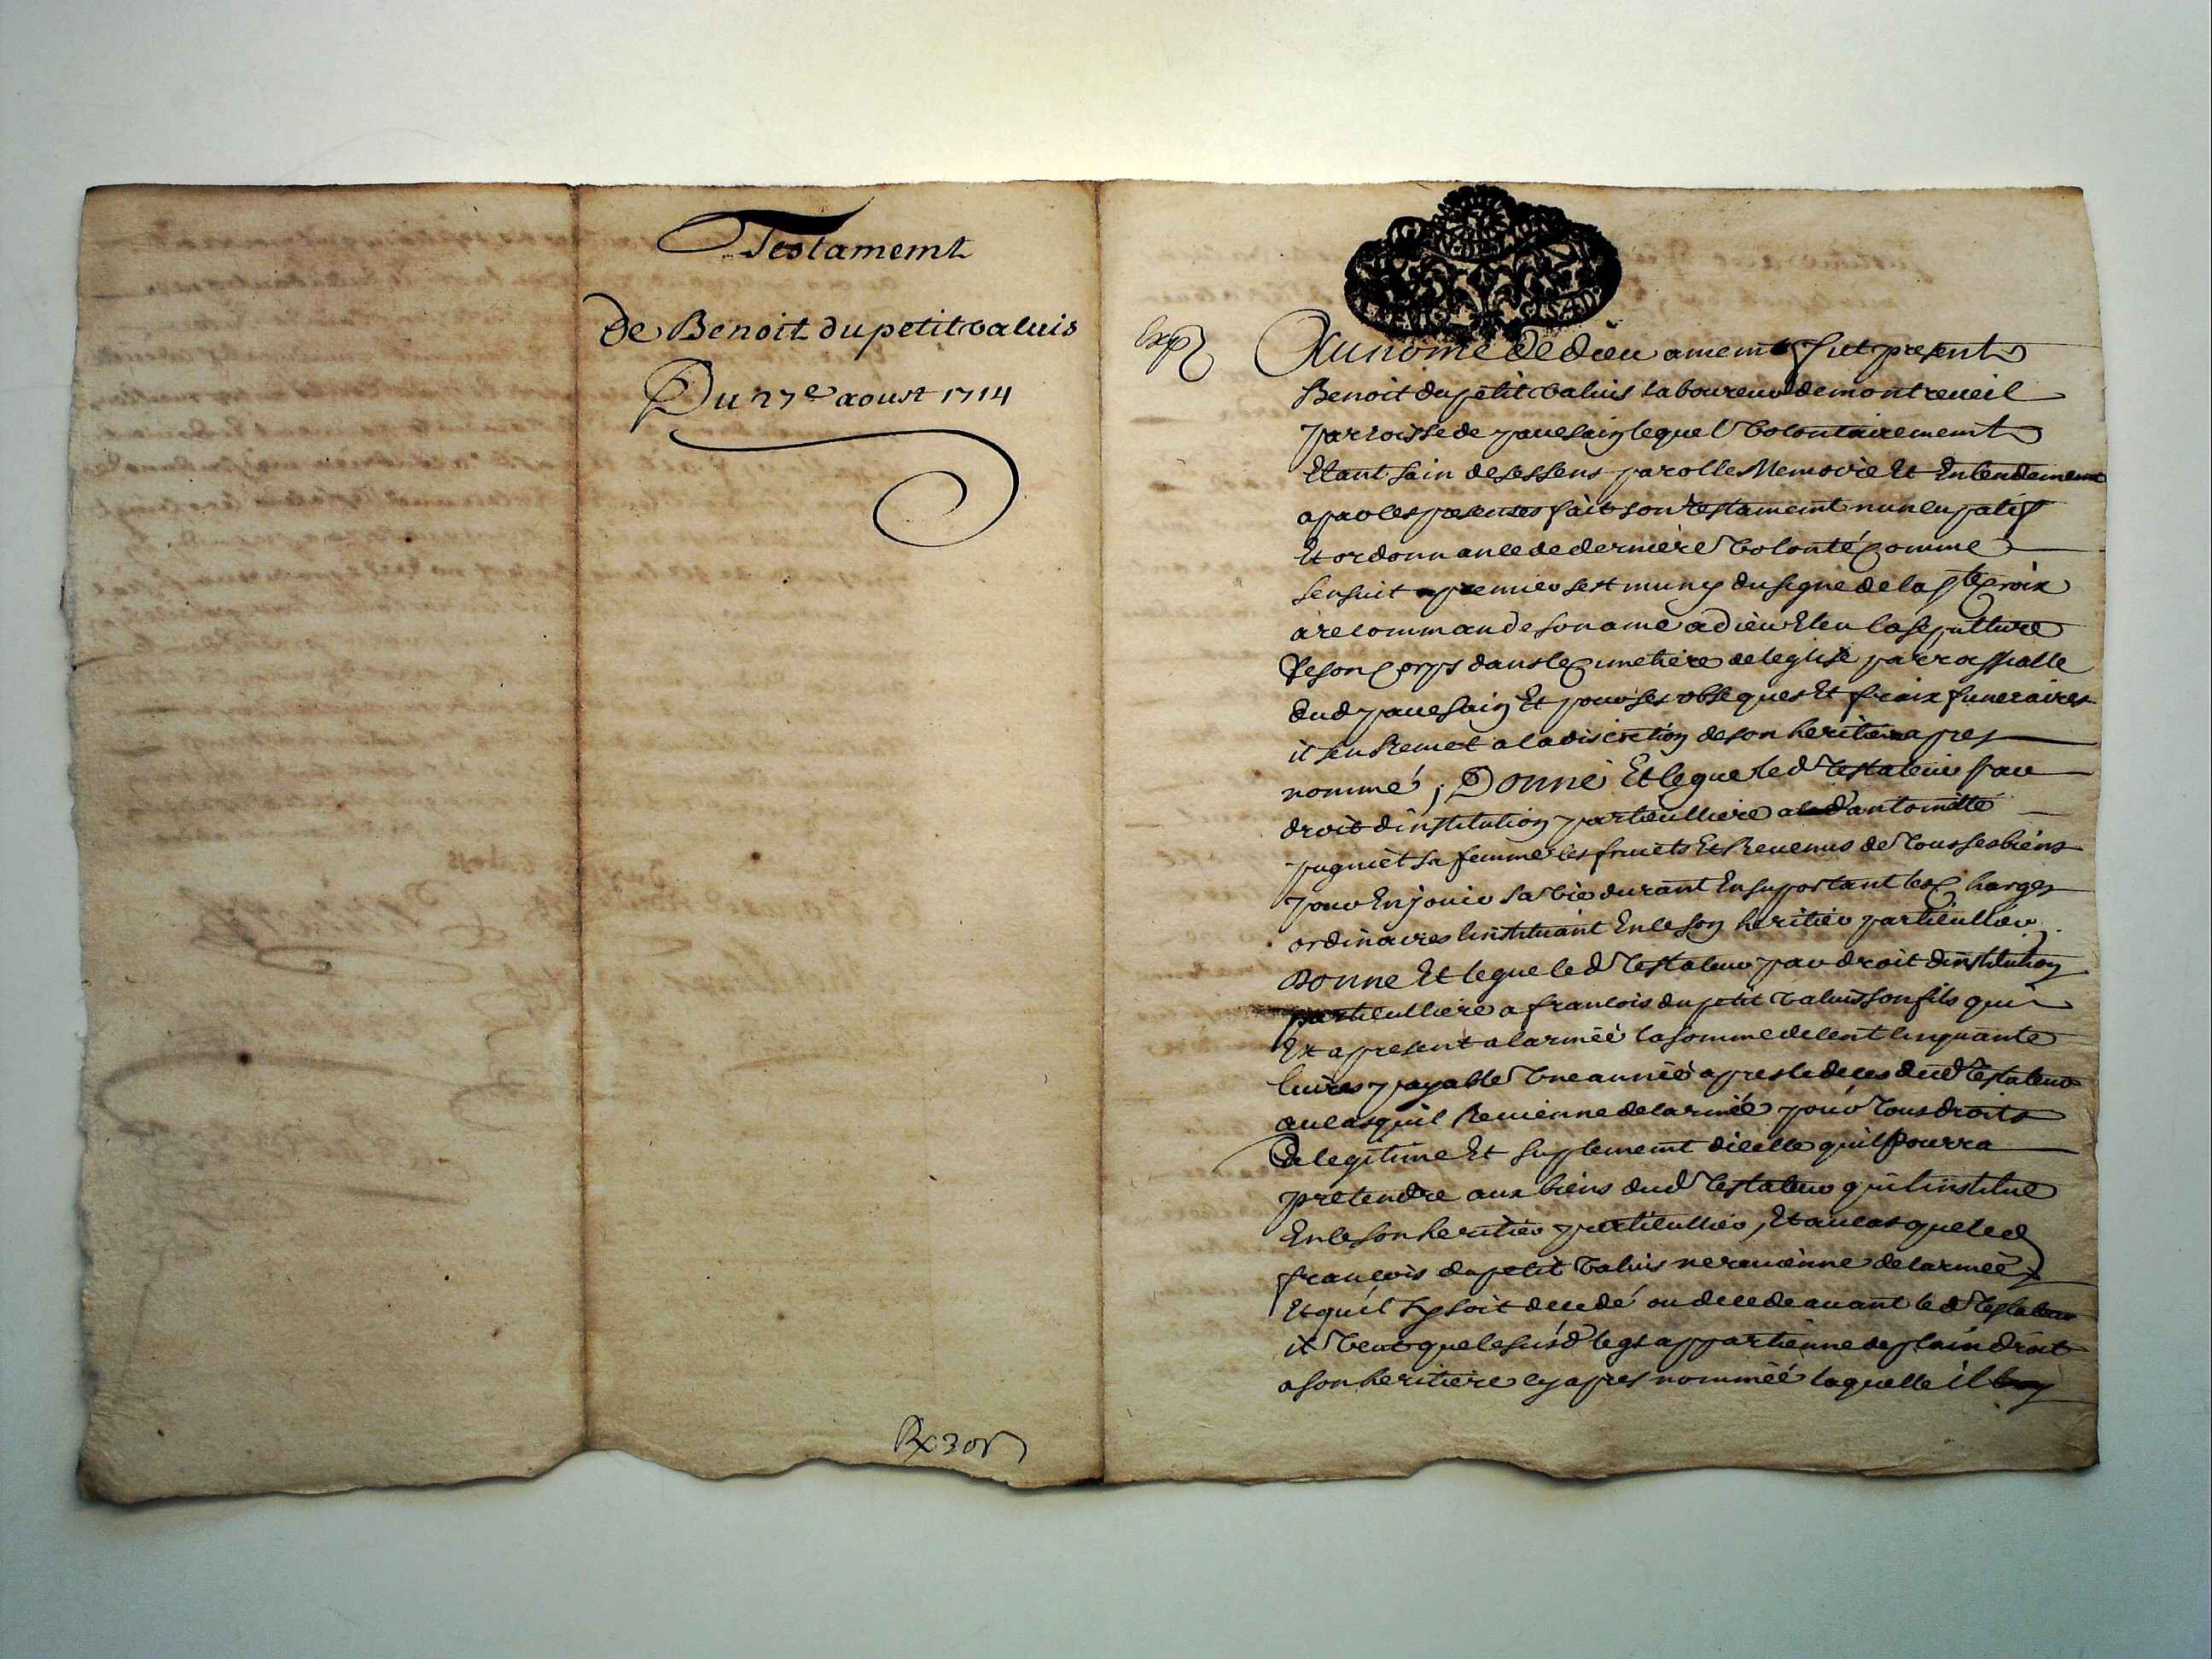 Testament
de Benoit du petit valuis
Du 27e aoust 1714
Rx 30s
Exp
Au nome de dieu ament fut present
Benoit du petit valuis laboureur de montreueil
parroisse de pauesain lequel volontairement
Etant sain de ses sens parolle Memoire Et Entendement
a par les presentes fait son testament nuncupatif
Et ordonnance de derniere volonté comme
sensuit premier sest muny du signe de la ste croix
a recommande son ame a dieu Eleu la sepulture
de son corps dans le cimetiere de leglise parrossialle
dud pauesain Et pour ses obseques Et fraix funeraires
il sen Remet a la discretion de son heritiere apres
nommé ; Donne Et legue led testateur par
droit dinstitution particulliere a antoinette
pugniet sa femme les fruicts Et Reuenus de tous ses biens
pour En jouir sa vie durant En suportant les charges
ordinaires linstituant En ce son heritier particullier
Donne Et legue led testateur par droit dinstitution
particulliere a francois du petit valuis son fils qui
Est a present a larmée la somme de cent cinquante
liures payable vne année apres le deces dud testateur
au cas quil Reuienne de larmée pour tous droits
de legitime Et suplement dicelle quil pourra
pretendre aux biens dud testateur quil institue
En ce son heritier particullier, Et au cas que led
francois du petit valuis ne reuienne de larmée
Et quil y soit decedé ou decede auant led testateur
il veut que le susd legs appartienne de plain droit
a son heritiere cy apres nommée laquelle il